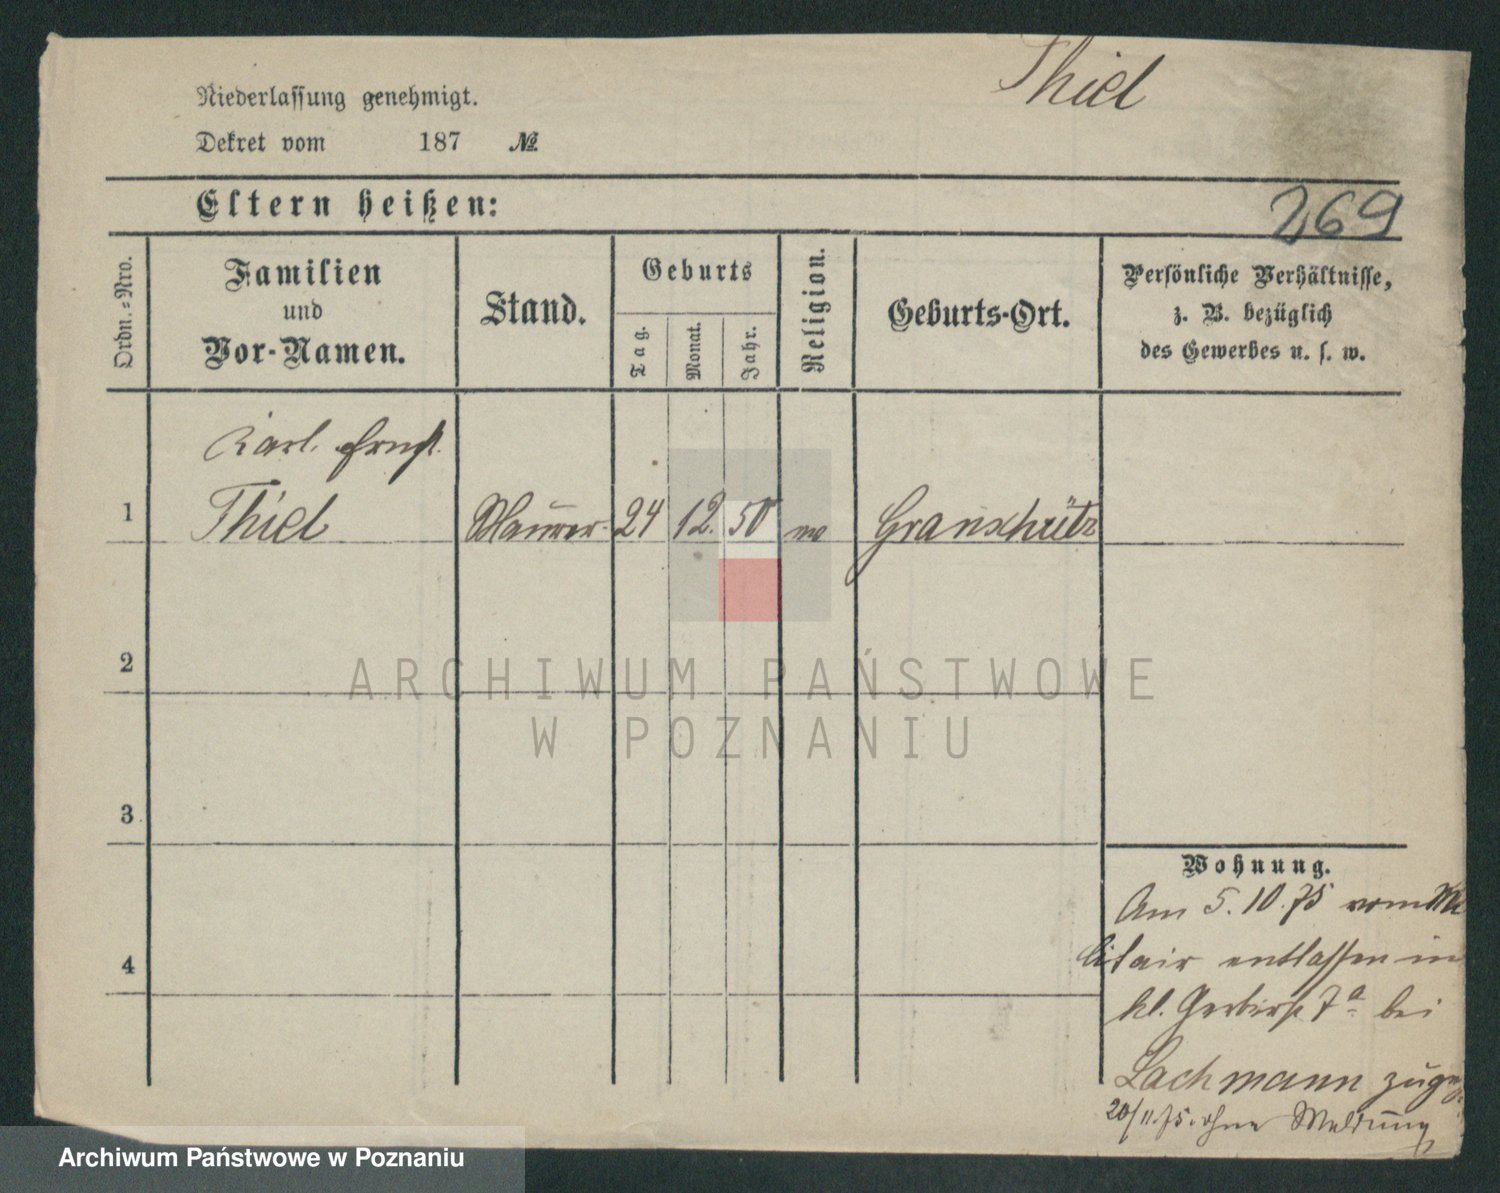 Thiel
Niederlassung genehmigt.
Dekret vom 187 №
Eltern heißen:
269
Ordn.-Nro.
Familien
und
Vor-Namen.
Stand.
Geburts
Tag.
Monat.
Jahr.
Religion.
Geburts-Ort.
Persönliche Verhältnisse,
z. B. bezüglich
des Gewerbes u. s. w.
Karl. Ernst.
1 Thiel Maurer 24 12. 50 ev Granschütz
2
3
4
Wohnung.
Am 5. 10. 75 vom Mi
litair entlassen in
kl. Gerberst 7a bei
Lachmann
20/11.75. ohne Meldung
ARCHIWUM PAŃSTWOWE
W POZNANIU
Archiwum Państwowe w Poznaniu